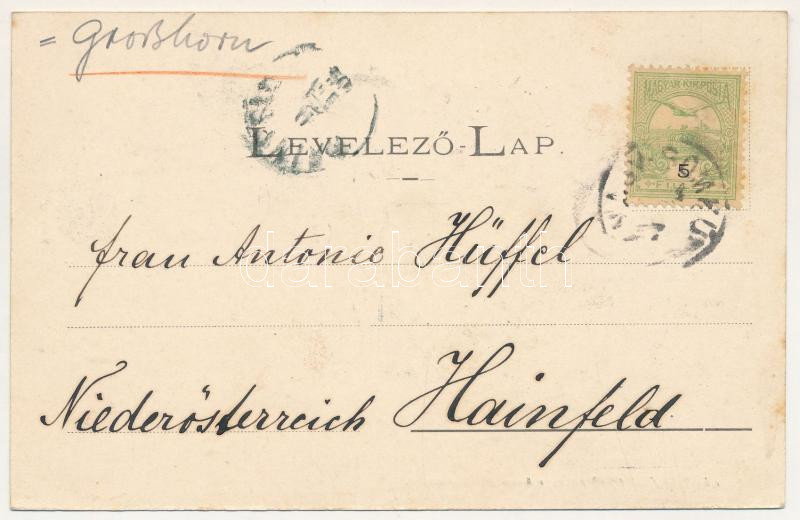 = Großhorn
LEVELEZŐ-LAP.
MAGYAR KIR. POSTA
5
Frau Antonie Hüffel
darabanth
Niederösterreich Hainfeld